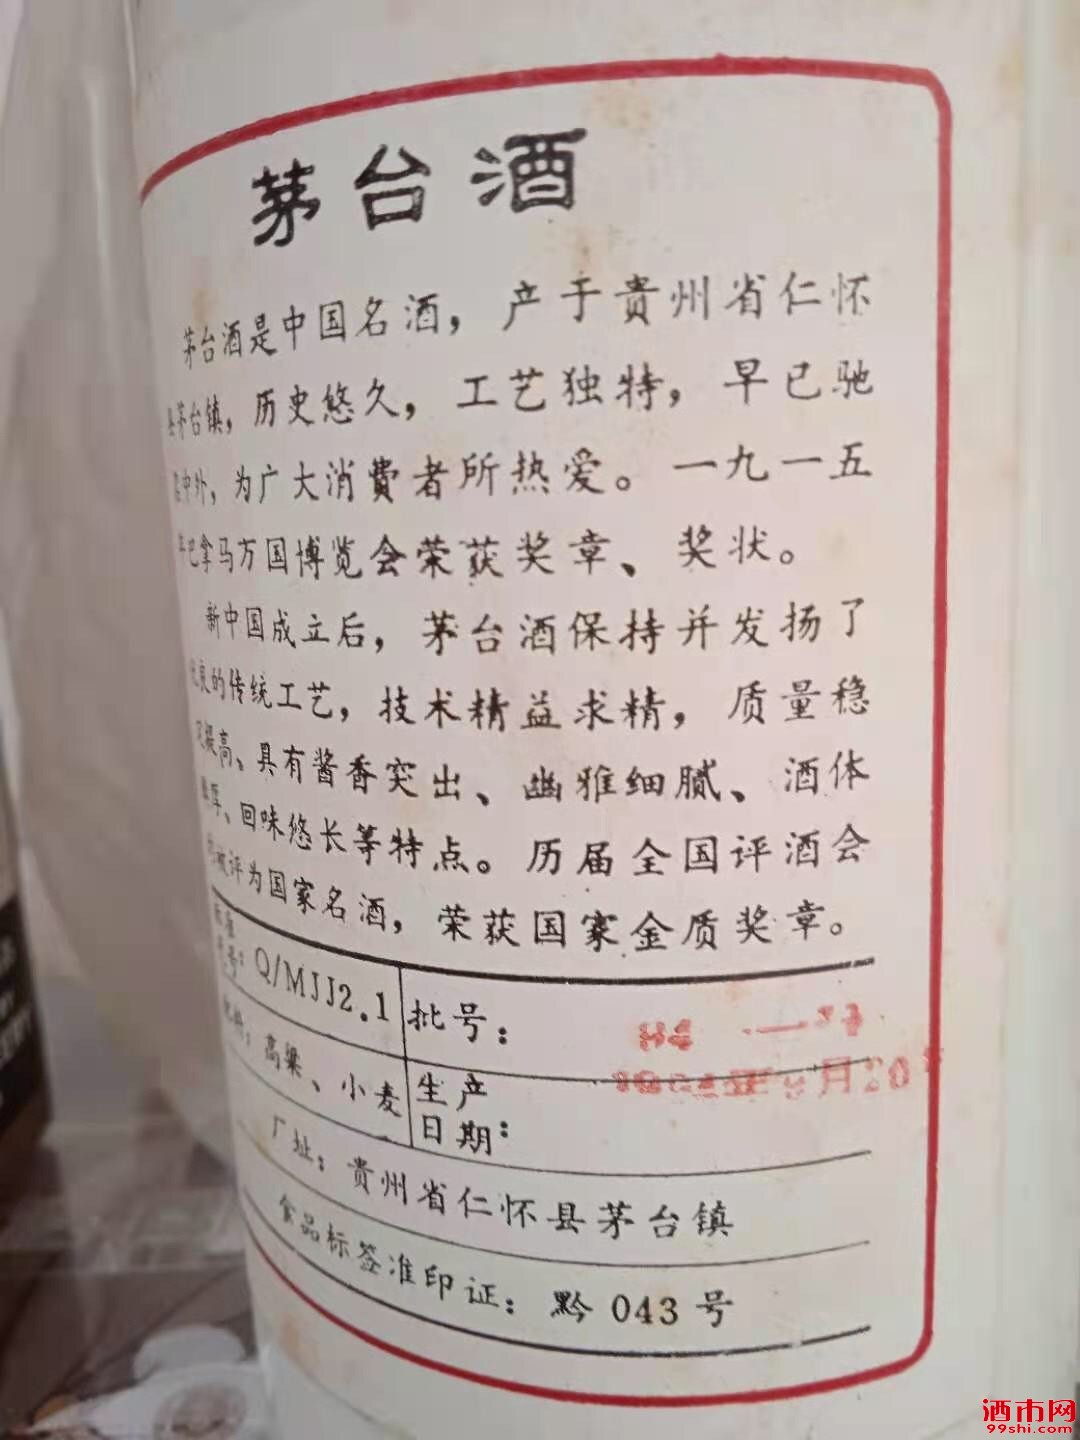 茅台酒
茅台酒是中国名酒，产于贵州省仁怀
县茅台镇，历史悠久，工艺独特，早已驰
中外，为广大消费者所热爱。一九一五
年巴拿马万国博览会荣获奖章、奖状。
新中国成立后，茅台酒保持并发扬了
良的传统工艺，技术精益求精，质量稳
提高、具有酱香突出、幽雅细腻、酒体
厚、回味悠长等特点。历届全国评酒会
被评为国家名酒，荣获国家金质奖章。
Q/MJJ2.1
批号：
高粱、小麦
生产
日期：
厂址：贵州省仁怀县茅台镇
食品标签准印证：黔043号
酒市网
99shi.com